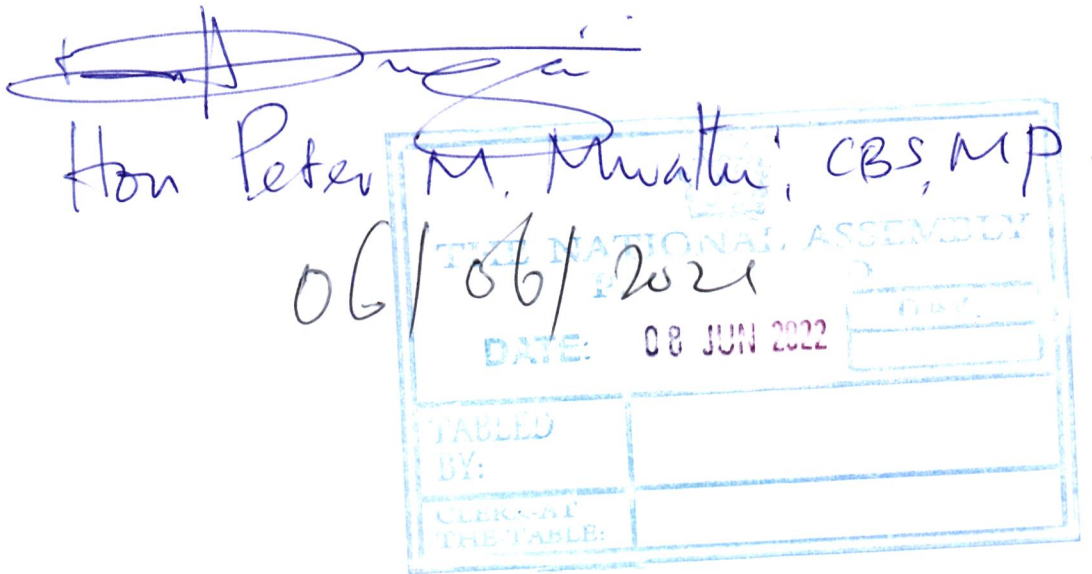 Hon Peter M. Mwathi, CBS, MP
06/06/2021
THE NATIONAL ASSEMBLY
DATE: 08 JUN 2022
DAY:
TABLED
BY:
CLERK-AT
THE-TABLE: